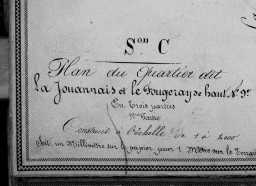 S.on C
Plan du Quartier dit
La Jouannais et le Fougeray de haut. N° 9.
En Trois parties
1ère Partie
Construit à l'échelle de 1 à 1000
Soit un Millimètre sur le papier pour 1 Mètre sur le